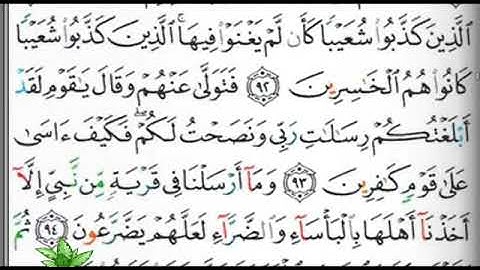 ٱلَّذِينَ كَذَّبُوا۟ شُعَيْبًا كَأَن لَّمْ يَغْنَوْا۟ فِيهَا ۚ ٱلَّذِينَ كَذَّبُوا۟ شُعَيْبًا
كَانُوا۟ هُمُ ٱلْخَـٰسِرِينَ ٩٢ فَتَوَلَّىٰ عَنْهُمْ وَقَالَ يَـٰقَوْمِ لَقَدْ
أَبْلَغْتُكُمْ رِسَـٰلَـٰتِ رَبِّى وَنَصَحْتُ لَكُمْ ۖ فَكَيْفَ ءَاسَىٰ
عَلَىٰ قَوْمٍ كَـٰفِرِينَ ٩٣ وَمَآ أَرْسَلْنَا فِى قَرْيَةٍ مِّن نَّبِىٍّ إِلَّآ
أَخَذْنَآ أَهْلَهَا بِٱلْبَأْسَآءِ وَٱلضَّرَّآءِ لَعَلَّهُمْ يَضَّرَّعُونَ ٩٤ ثُمَّ